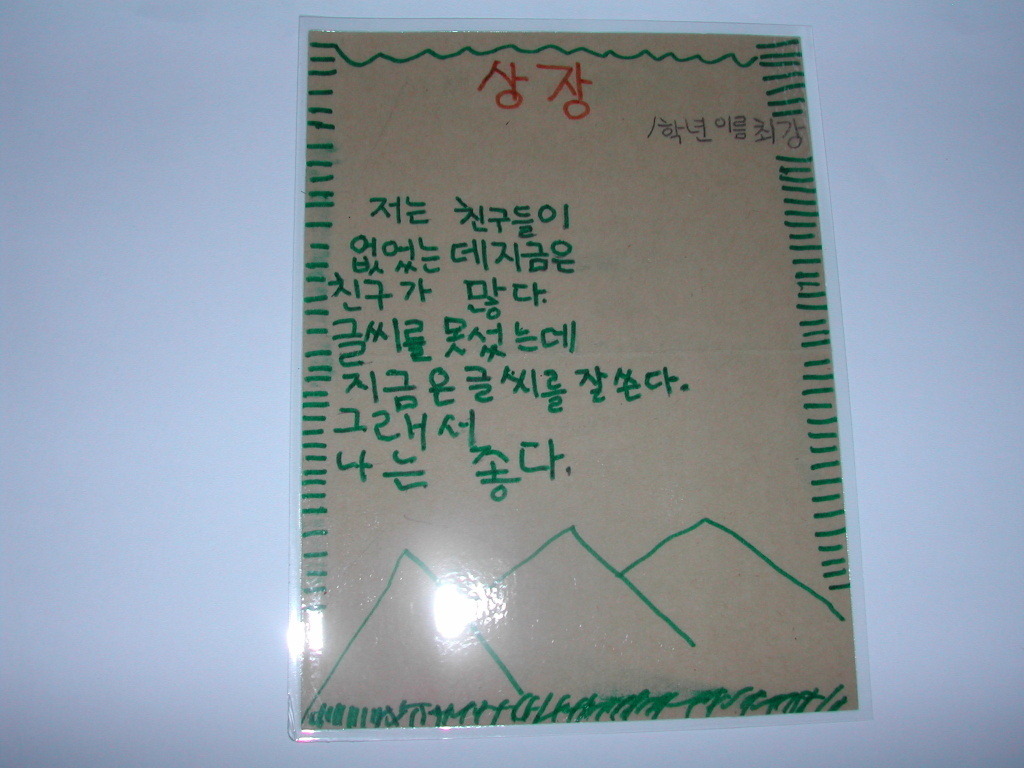 상장
1학년 이름 최강
저는 친구들이
없었는데 지금은
친구가 많다.
글씨를 못썼는데
지금은 글씨를 잘 쓴다.
그래서
나는 좋다.